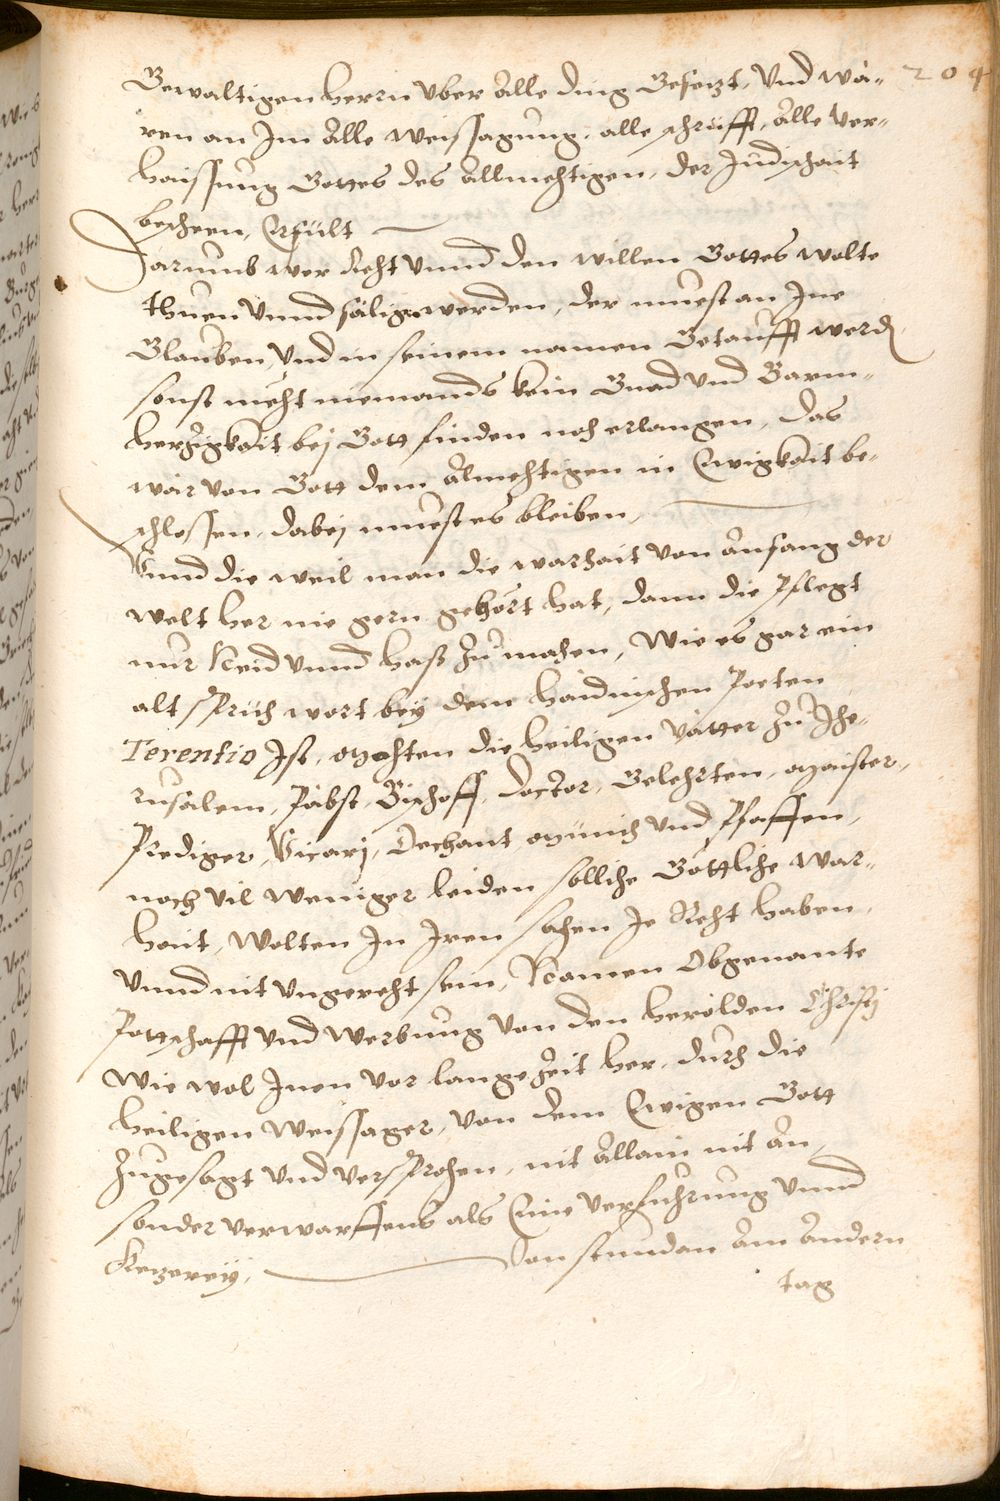 204
Gewaltigen herrn uber Alle ding Gesezt, Und wä-
ren an Im Alle Weissagung, alle schrifft, Alle Ver-
haissung Gottes des Allmechtigen, der Judischait
bescheen, Erfült
Darumb wer Recht Unnd den willen Gottes wolte
thuen Unnd sälig werden, der muest an Ine
Glauben, Und in seinem namen Getaufft werdn
sonst mecht niemands kein Gnad Und Barm-
herzigkait bej Gott finden noch erlangen, das
wär von Gott dem Almechtigen in Ewigkait be-
schlossen, dabej muest es bleiben,
Unnd die weil man die warhait von Anfang der
welt her nie gern gehört hat, dann die Pflegt
nur Neid Unnd haß zu machen, Wie es gar ein
alt sprüch wort bey dem haidnischen Poeten
Terentio Ist, Mochten die heiligen Vätter zu Ihe-
rusalem, Päbst, Bischoff, Doctor, Gelehrten, Maister,
Prediger, Vicarj, Dechant, Münich Und Pfaffen,
noch vil weniger leiden solliche Göttliche War-
hait, Wolten In Iren sachen Ie Recht haben,
Unnd nit Ungerecht sein, Namen Obgenante
Pottschafft Und Werbung von den herolden Christj
Wie wol Inen vor lange Zeit her, durch die
heiligen Weissager, von dem Ewigen Gott
Zugesagt Und versprochen, nit Allain nit An,
sonder verwarffens als Eine verfuhrung Unnd
Kezerey, Von stundan Am Andern
tag